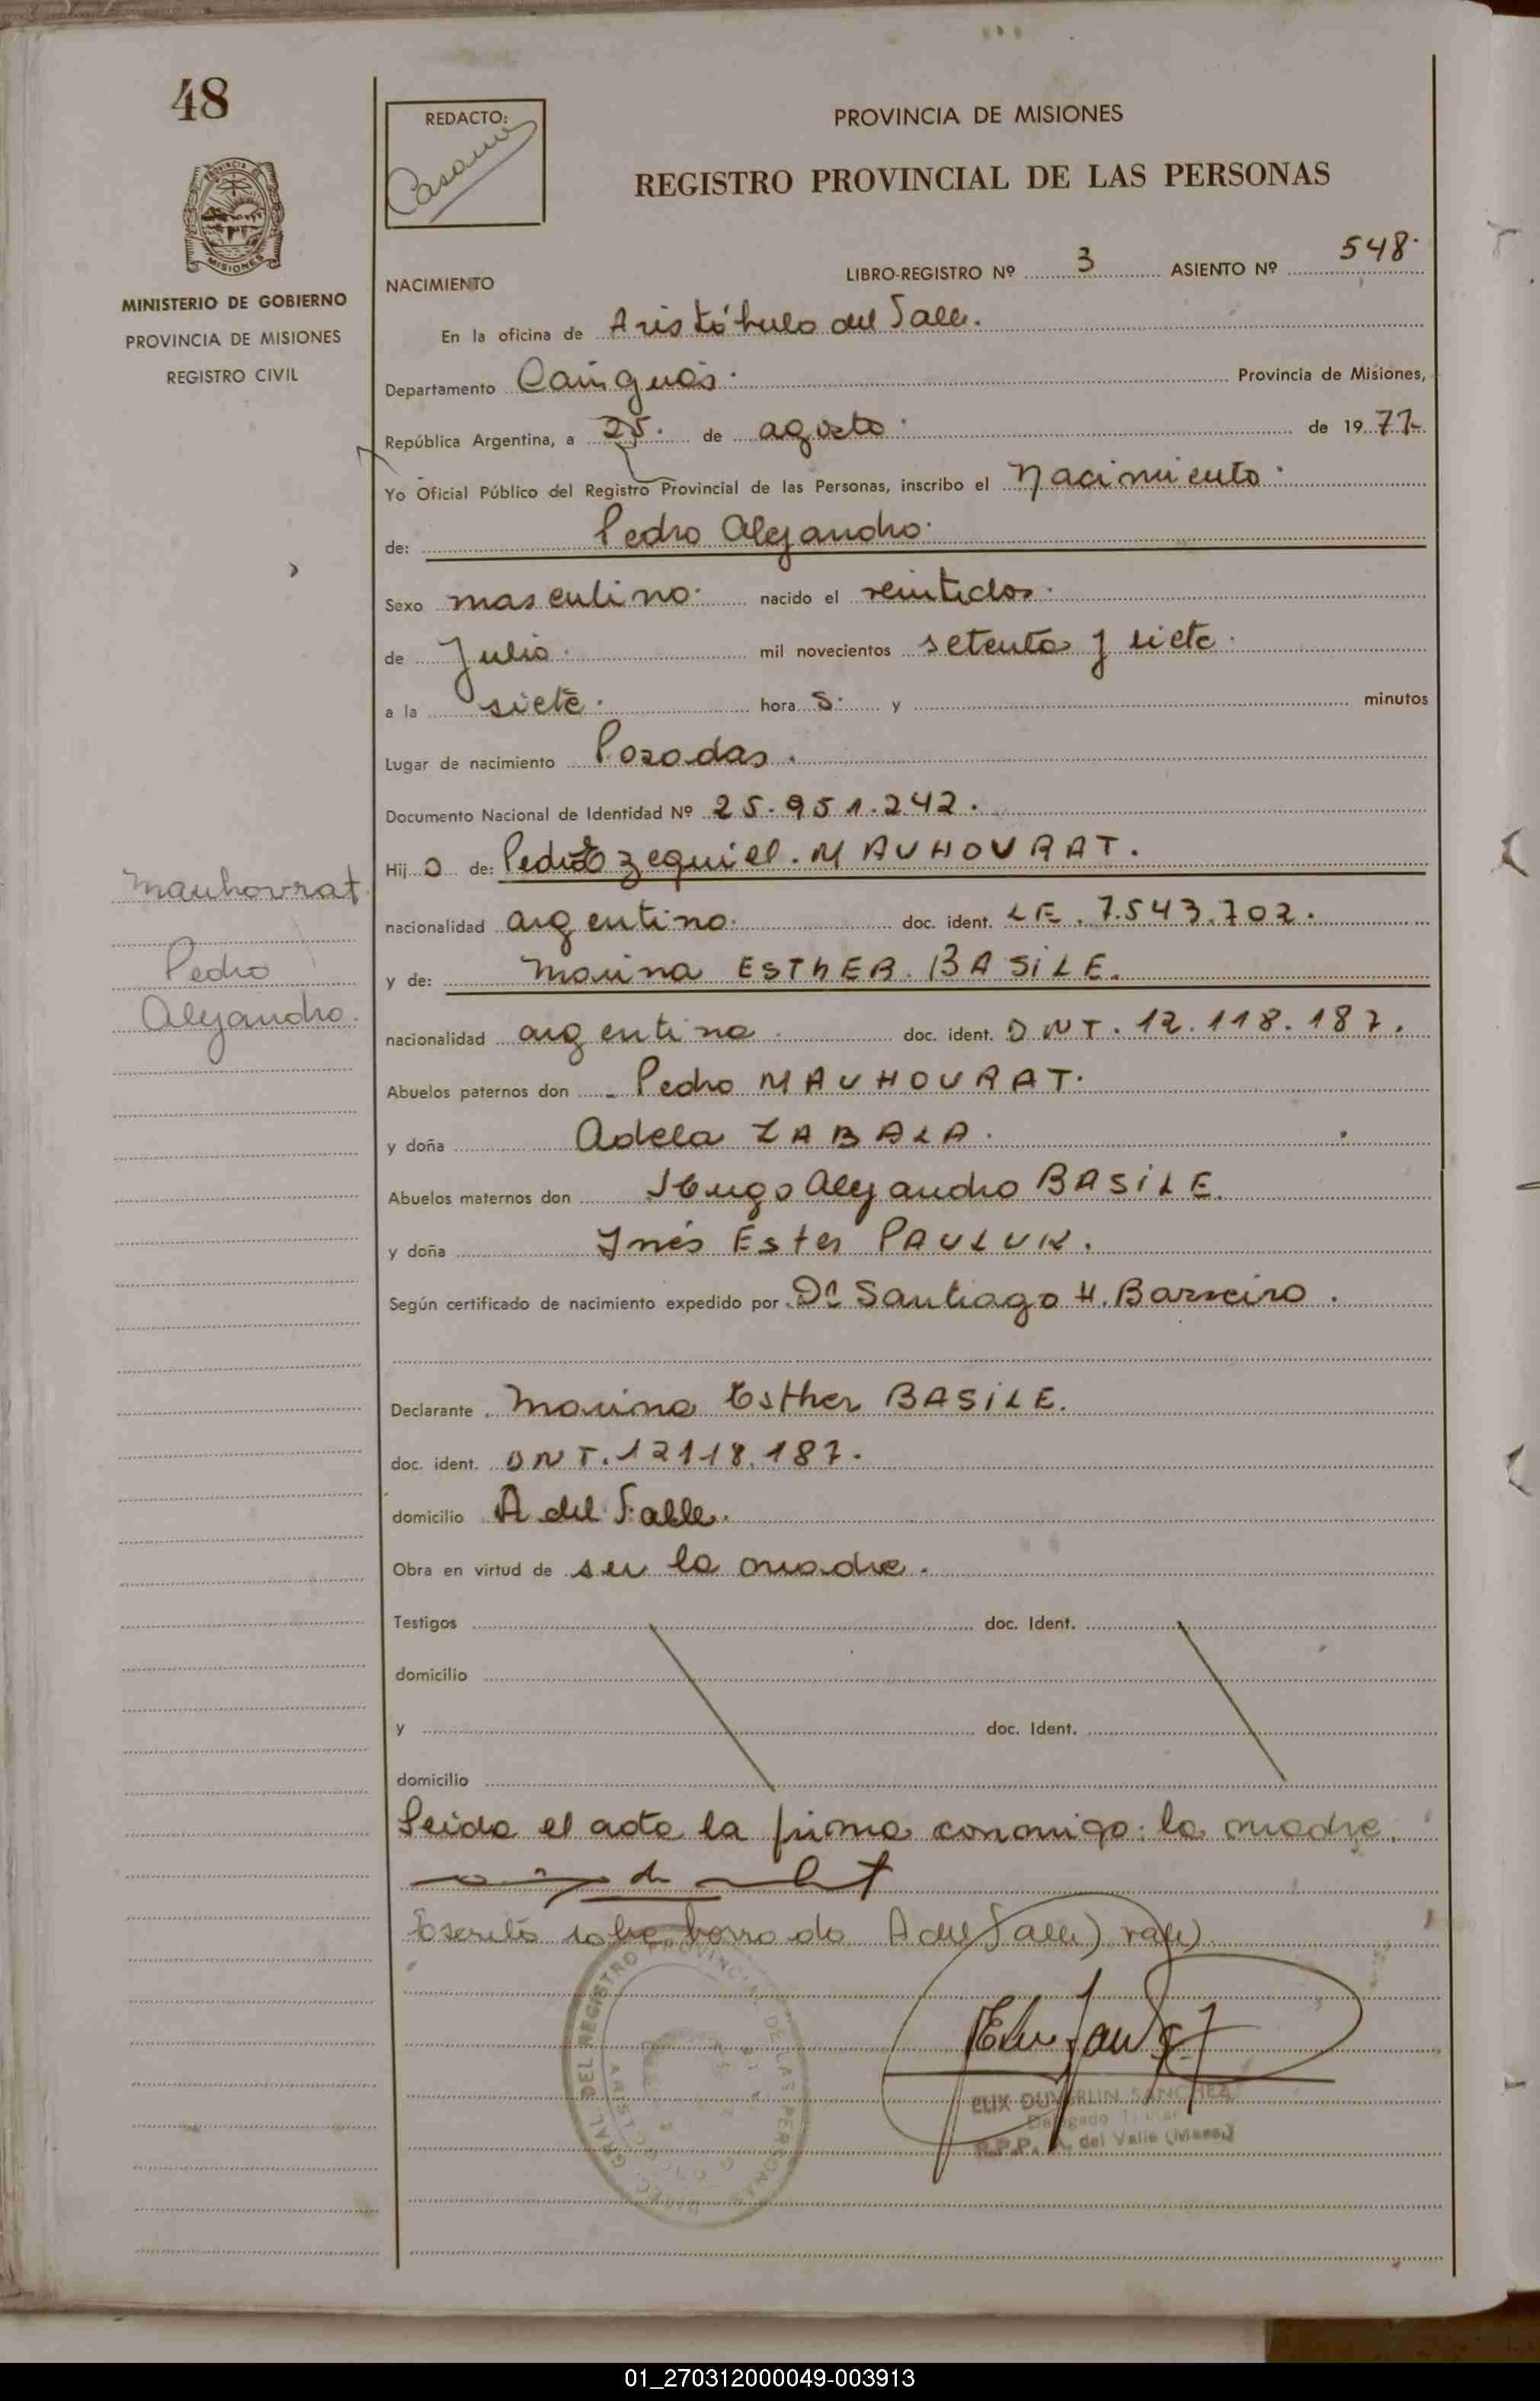 48
REDACTO:
PROVINCIA DE MISIONES
REGISTRO PROVINCIAL DE LAS PERSONAS
PROVINCIA
MISIONES
MINISTERIO DE GOBIERNO
PROVINCIA DE MISIONES
REGISTRO CIVIL
LIBRO-REGISTRO Nº 3 ASIENTO Nº 548.
NACIMIENTO
En la oficina de Aristóbulo del Valle.
Departamento Cainguás. Provincia de Misiones,
República Argentina, a 25. de agosto. de 1977.
Yo Oficial Público del Registro Provincial de las Personas, inscribo el Nacimiento.
de: Pedro Alejandro.
Sexo masculino. nacido el veintidos.
de Julio. mil novecientos setenta y siete.
a la siete. hora s. y minutos
Lugar de nacimiento Posadas.
Documento Nacional de Identidad Nº 25.951.242.
Hij o de: Pedro Ezequiel. MAUHOURAT.
nacionalidad argentino. doc. ident. LE. 7.543.702.
y de: Marina ESTHER. BASiLE.
nacionalidad argentina. doc. ident. DNT. 12.118.187.
Abuelos paternos don Pedro MAUHOURAT.
y doña Adela ZABALA.
Abuelos maternos don Hugo Alejandro BASiLE.
y doña Inés Ester PAULUK.
Según certificado de nacimiento expedido por Dr Santiago H. Barreiro.
Declarante Marina Esther BASiLE.
doc. ident. DNT. 12118.187.
domicilio A del Valle.
Obra en virtud de ser la madre.
Testigos doc. Ident.
domicilio
y doc. Ident.
domicilio
Leida el acta la firma conmigo: la madre.
Escrito sobre borrado A del Valle) vale)
Mauhourat
Pedro
Alejandro.
DIREC. GRAL. DEL REGISTRO PROVINCIAL DE LAS PERSONAS
SANCHEZ
Delegado Titular
R.P.P. A. del Valle (Mnes.)
01_270312000049-003913